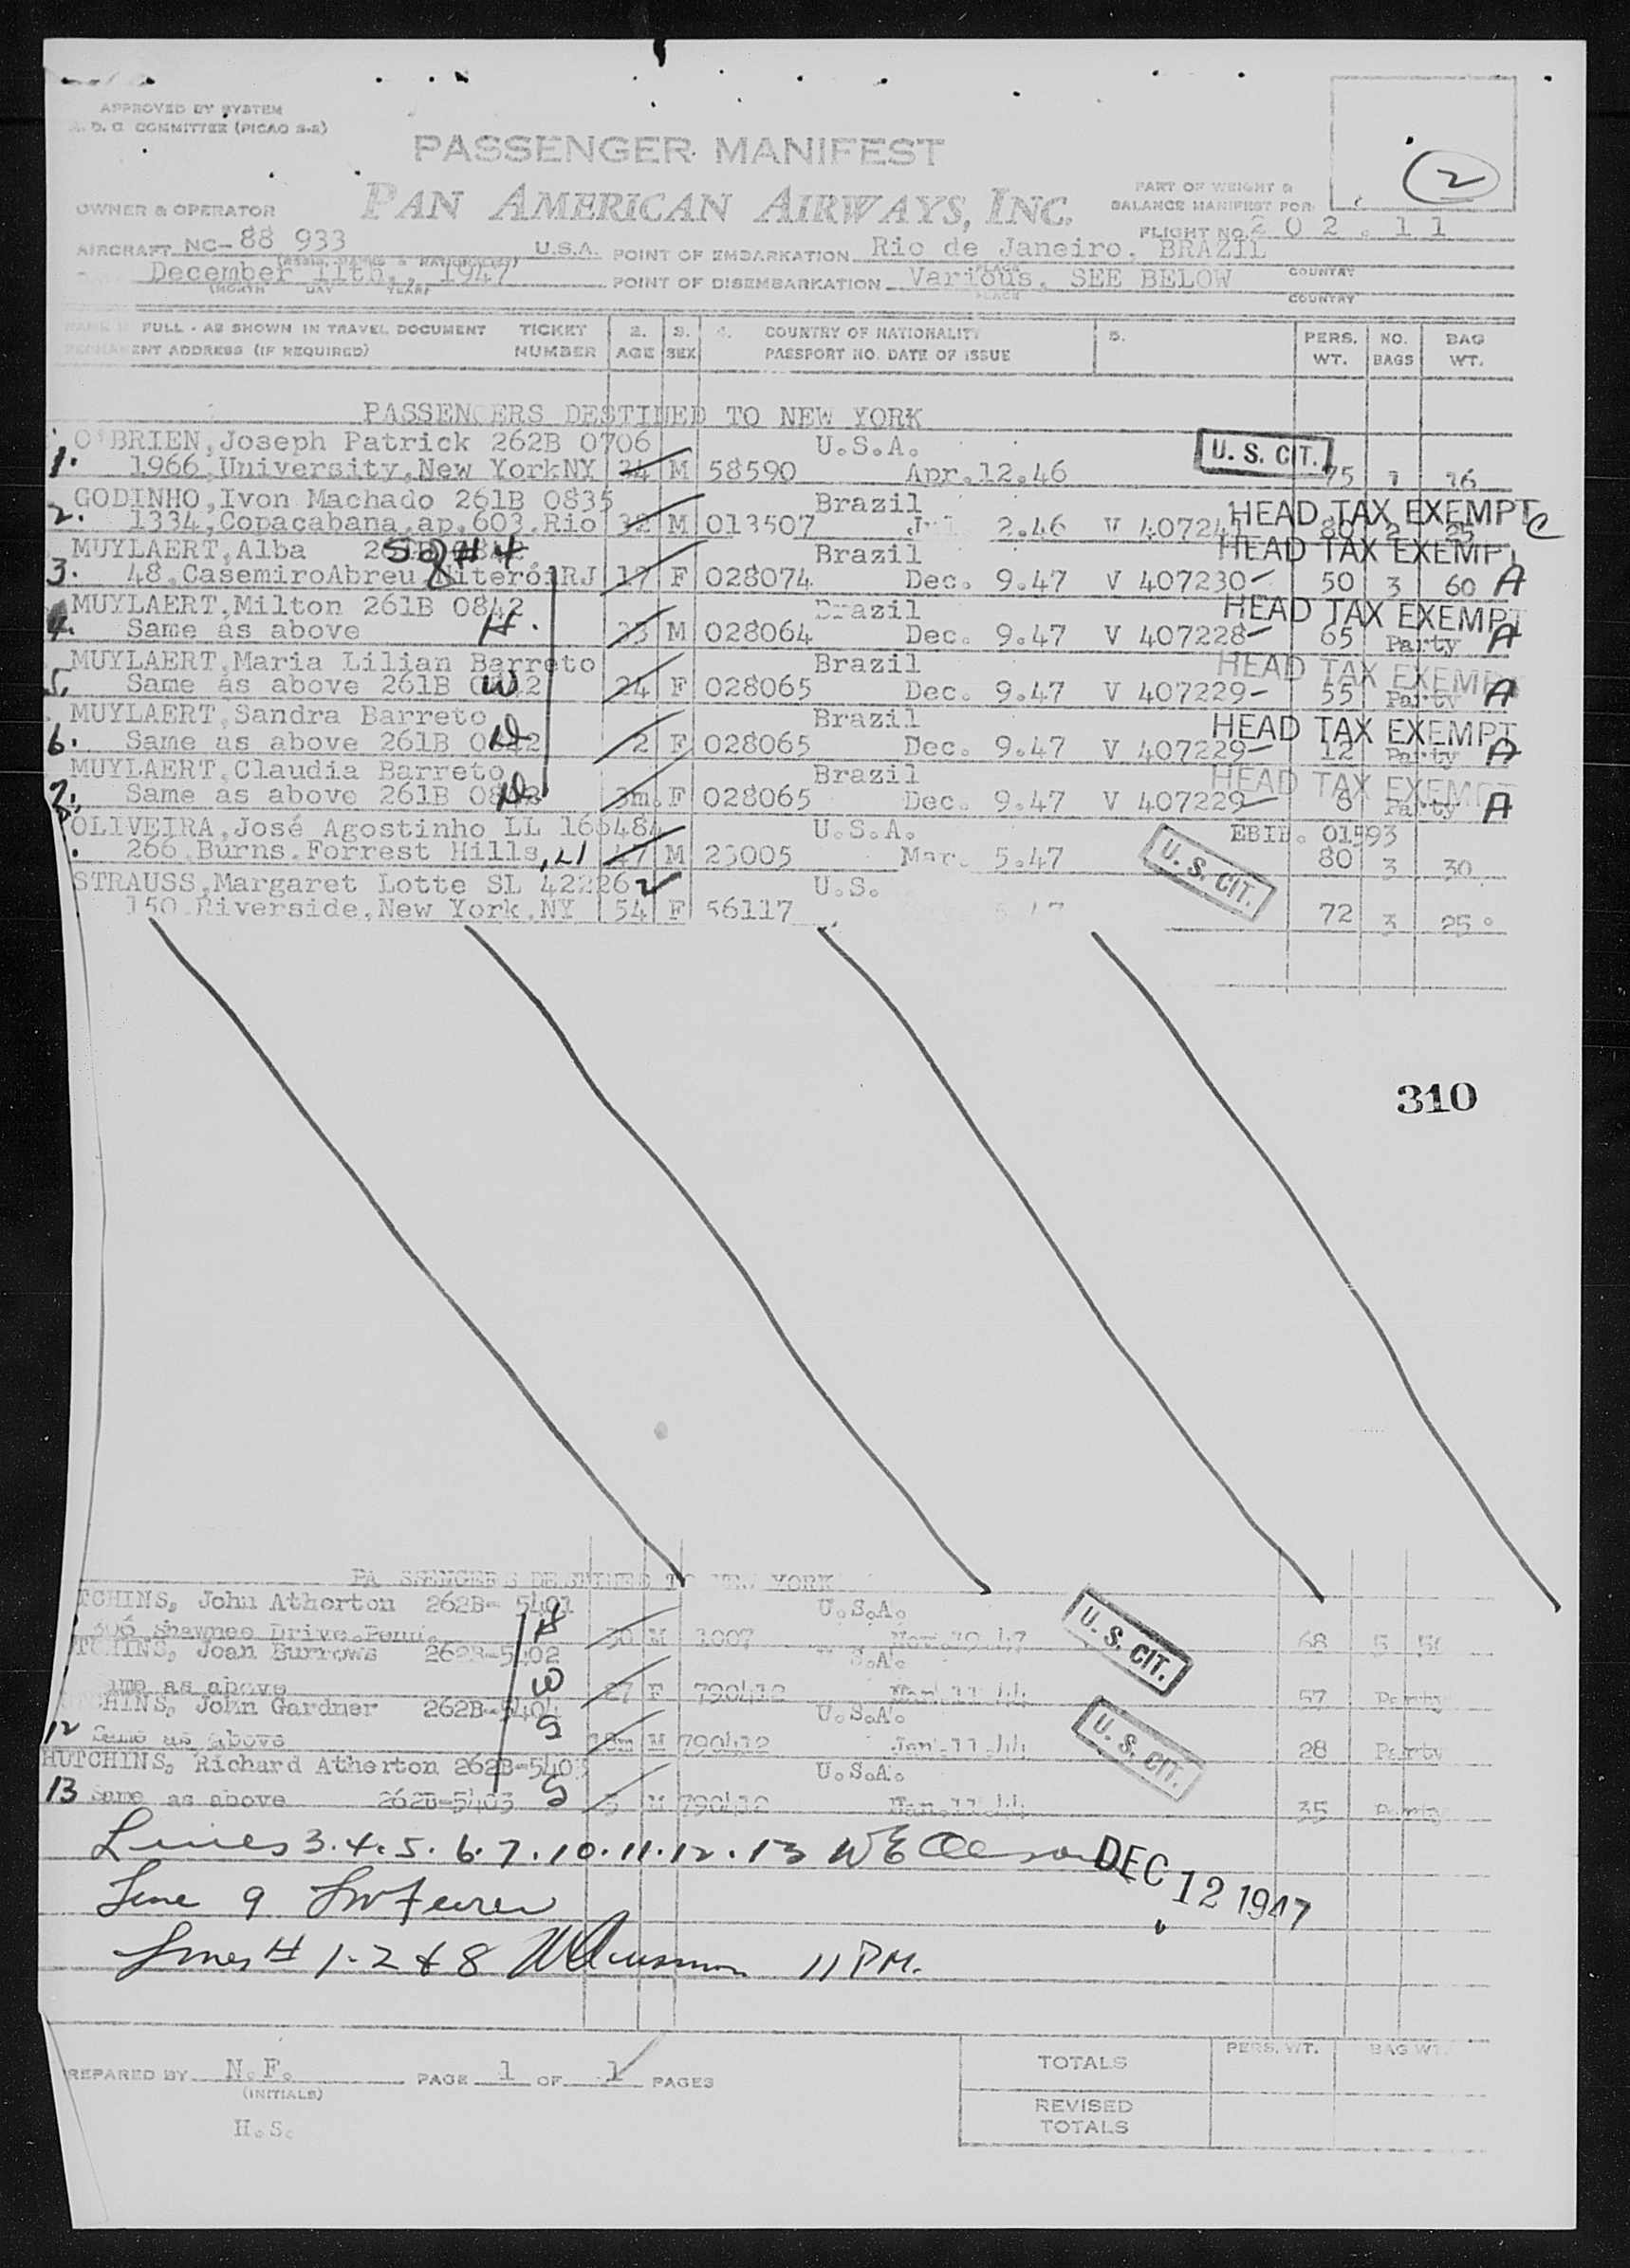 APPROVED BY SYSTEM
COMMITTEE (PICAO S-2)
PASSENGER MANIFEST
PAN AMERICAN AIRWAYS, INC.
2
PART OF WEIGHT &
BALANCE MANIFEST FOR
OWNER & OPERATOR
FLIGHT NO. 202.11
AIRCRAFT NC-88 933 U.S.A. POINT OF EMBARKATION Rio de Janeiro, BRAZIL
PLACE COUNTRY
December 11th., 1947 POINT OF DISEMBARKATION Various, SEE BELOW
(MONTH DAY YEAR) PLACE COUNTRY
FULL - AS SHOWN IN TRAVEL DOCUMENT TICKET 2. 3. 4. COUNTRY OF NATIONALITY 5. PERS. NO. BAG
PERMANENT ADDRESS (IF REQUIRED) NUMBER AGE SEX PASSPORT NO. DATE OF ISSUE WT. BAGS WT.
PASSENGERS DESTINED TO NEW YORK
O'BRIEN, Joseph Patrick 262B 0706 U.S.A. U. S. CIT.
1. 1966, University, New YorkNY 34 M 58590 Apr.12.46 75 1 16
GODINHO, Ivon Machado 261B 0835 Brazil HEAD TAX EXEMPT C
2. 1334, Copacabana, ap. 603, Rio 32 M 013507 2.46 V 80 2 25
MUYLAERT, Alba Brazil HEAD TAX EXEMPT
3. 48, CasemiroAbreu, NiteróiRJ 17 F 028074 Dec. 9.47 V 407230 50 3 60 A
MUYLAERT, Milton 261B 0842 Brazil HEAD TAX EXEMPT
4. Same as above H. 33 M 028064 Dec. 9.47 V 407228 65 Party A
MUYLAERT, Maria Lilian Barreto Brazil HEAD TAX EXEMPT
5. Same as above 261B 0842 W 24 F 028065 Dec. 9.47 V 407229 55 Party A
MUYLAERT, Sandra Barreto Brazil HEAD TAX EXEMPT
6. Same as above 261B 0842 D 2 F 028065 Dec. 9.47 V 407229 12 Party A
MUYLAERT, Claudia Barreto Brazil HEAD TAX EXEMPT
7. Same as above 261B D 3m. F 028065 Dec. 9.47 V 407229 8 Party A
OLIVEIRA, José Agostinho LL U.S.A. 01593
266, Burns, Forrest Hills, LI 47 M 23005 Mar. 5.47 U. S. CIT. 80 3 30
STRAUSS, Margaret Lotte SL 42226 U.S.
150 Riverside, New York, NY 54 F 56117 72 3 25
310
PASSENGERS DESTINED TO NEW YORK
John Atherton 262B-5401 U.S.A. U. S. CIT.
Shawnee Drive, Penn. H 30 M 1007 Nov.19.47 68 5
Joan Burrows 262B-5402
as above W 27 F 790412 Jan.11.44 57 Party
John Gardner 262B-5404 U.S.A. U. S. CIT.
12 Same as above S 18m M 790412 Jan.11.44 28 Party
HUTCHINS, Richard Atherton U.S.A.
13 Same as above 262B-5403 S M 790412 Jan.11.44 35 Party
Lines 3.4.5.6.7.10.11.12.13 DEC 12 1947
Line 9
Lines # 1-2 & 8 11 PM.
PREPARED BY N.F. PAGE 1 OF 1 PAGES
(INITIALS)
H.S.
PERS. WT. BAG WT.
TOTALS
REVISED
TOTALS